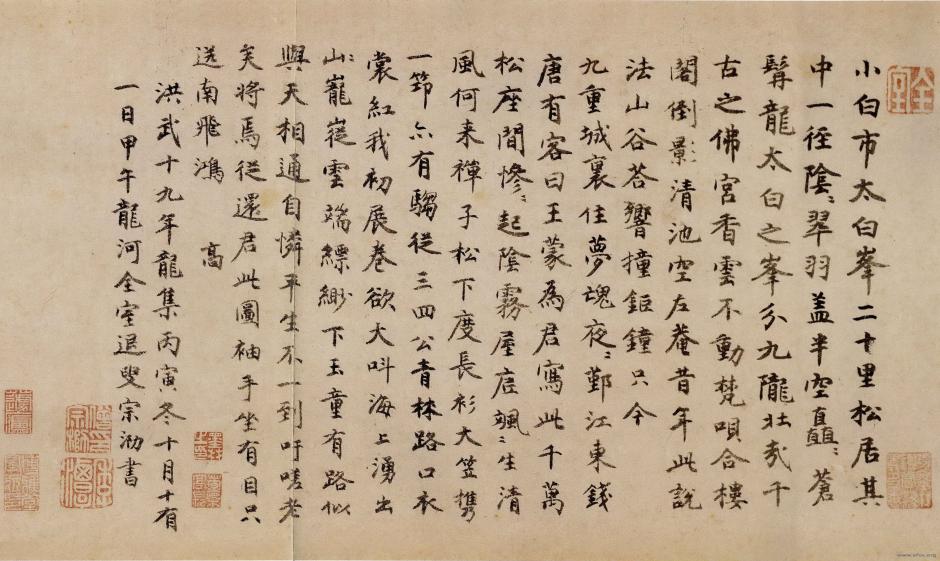 全室
小白市太白峯二十里松居其
中一徑陰〻翠羽盖半空矗〻蒼
髯龍太白之峯分九隴壯哉千
古之佛宮香雲不動梵唄合樓
閣倒影清池空左菴昔年此説
法山谷荅響撞鉅鐘只今
九重城裏住夢魂夜〻鄞江東錢
唐有客曰王蒙為君寫此千萬
松座間慘〻起陰霧屋底颯〻生清
風何来禪子松下度長衫大笠攜
一筇亦有騶從三四公青林路口衣
裳紅我初展卷欲大呌海上湧出
山〻巃嵸雲端縹緲下玉童有路似
與天相通自憐平生不一到吁嗟老
矣將焉從還君此圖袖手坐有目只
送南飛鴻 高
洪武十九年龍集丙寅冬十月十有
一日甲午龍河全室退叟宗泐書